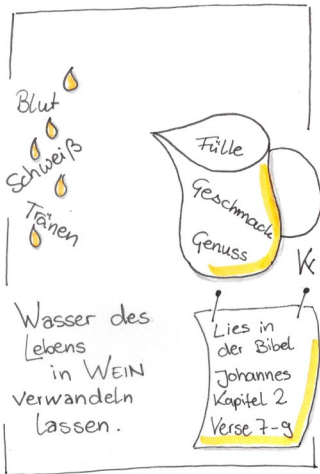 Blut
Schweiß
Tränen
Fülle
Geschmack
Genuss
Wasser des
Lebens
in WEIN
verwandeln
lassen.
Lies in
der Bibel
Johannes
Kapitel 2
Verse 7-9